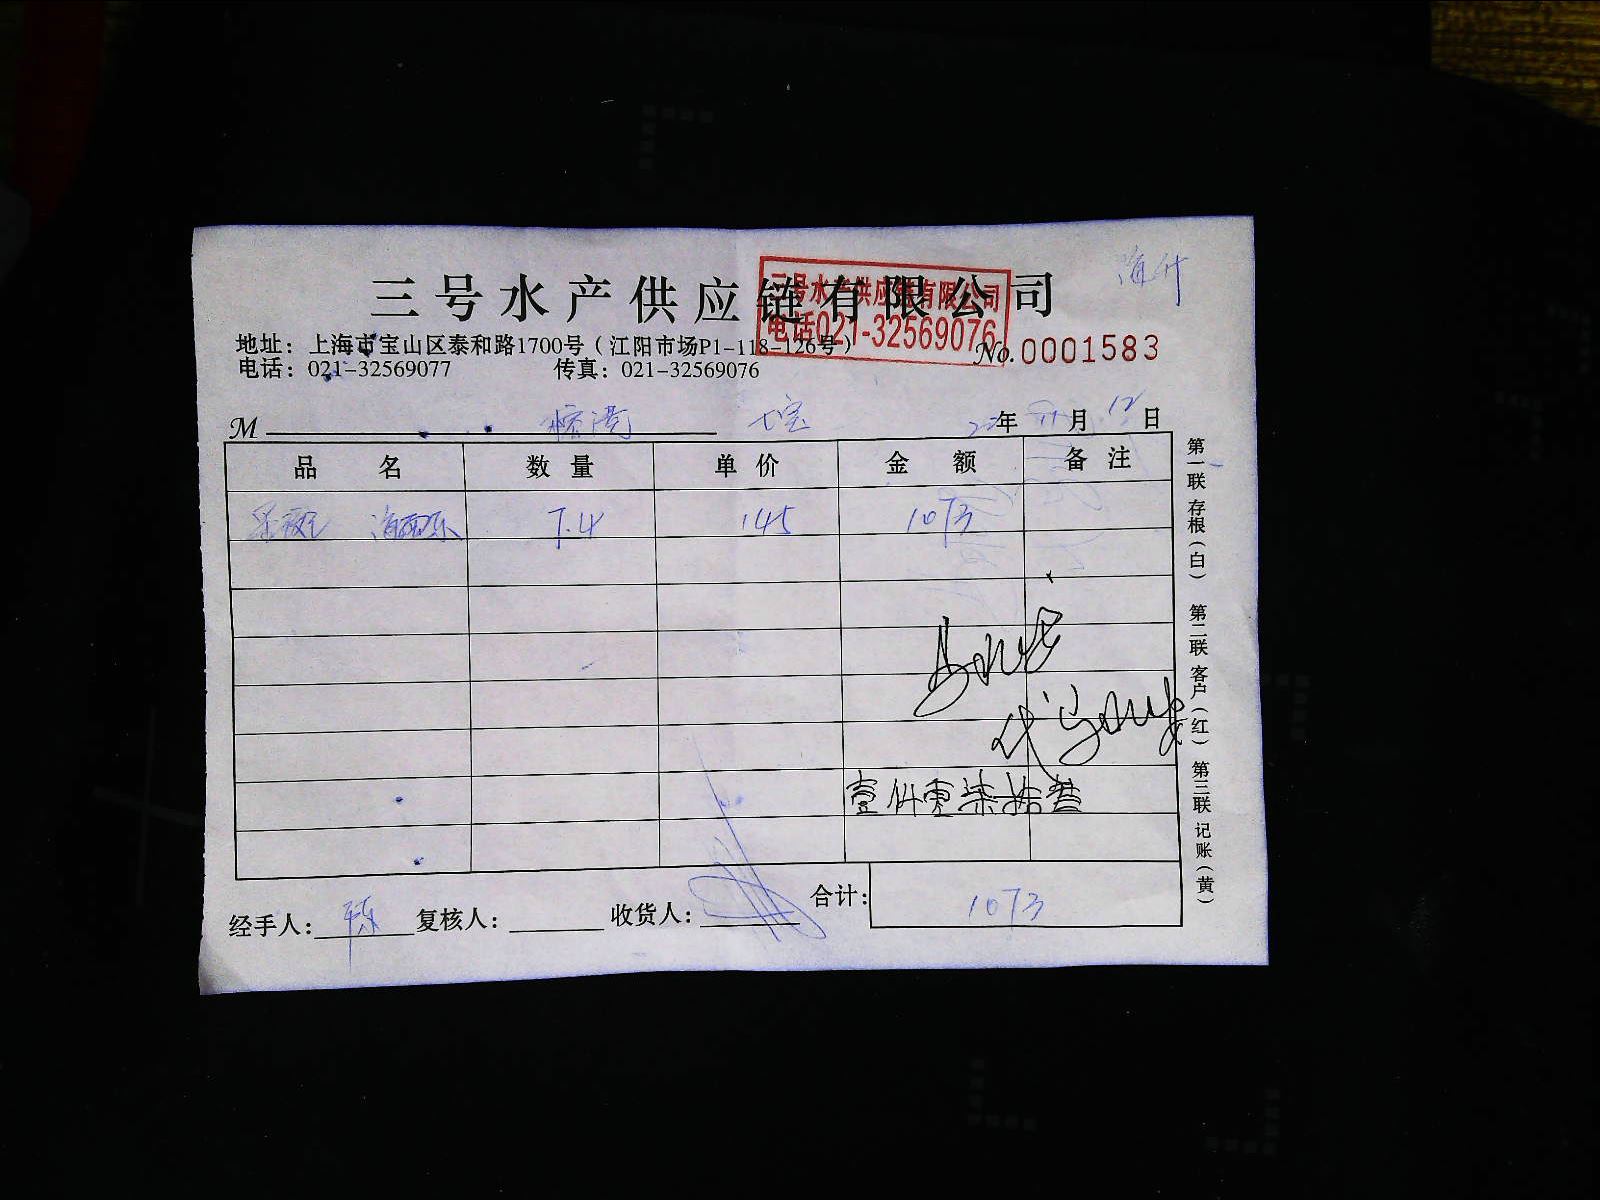 三号水产供应链有限公司
三号水产供应链有限公司
电话021-32569076
地址：上海市宝山区泰和路1700号（江阳市场P1-118-126号）
No.0001583
电话：021-32569077 传真：021-32569076
M 七宝 年 月 12 日
品名 数量 单价 金额 备注
7.4 145 1073
壹仟零柒拾叁
经手人： 陈 复核人： 收货人： 合计： 1073
第一联 存根（白） 第二联 客户（红） 第三联 记账（黄）